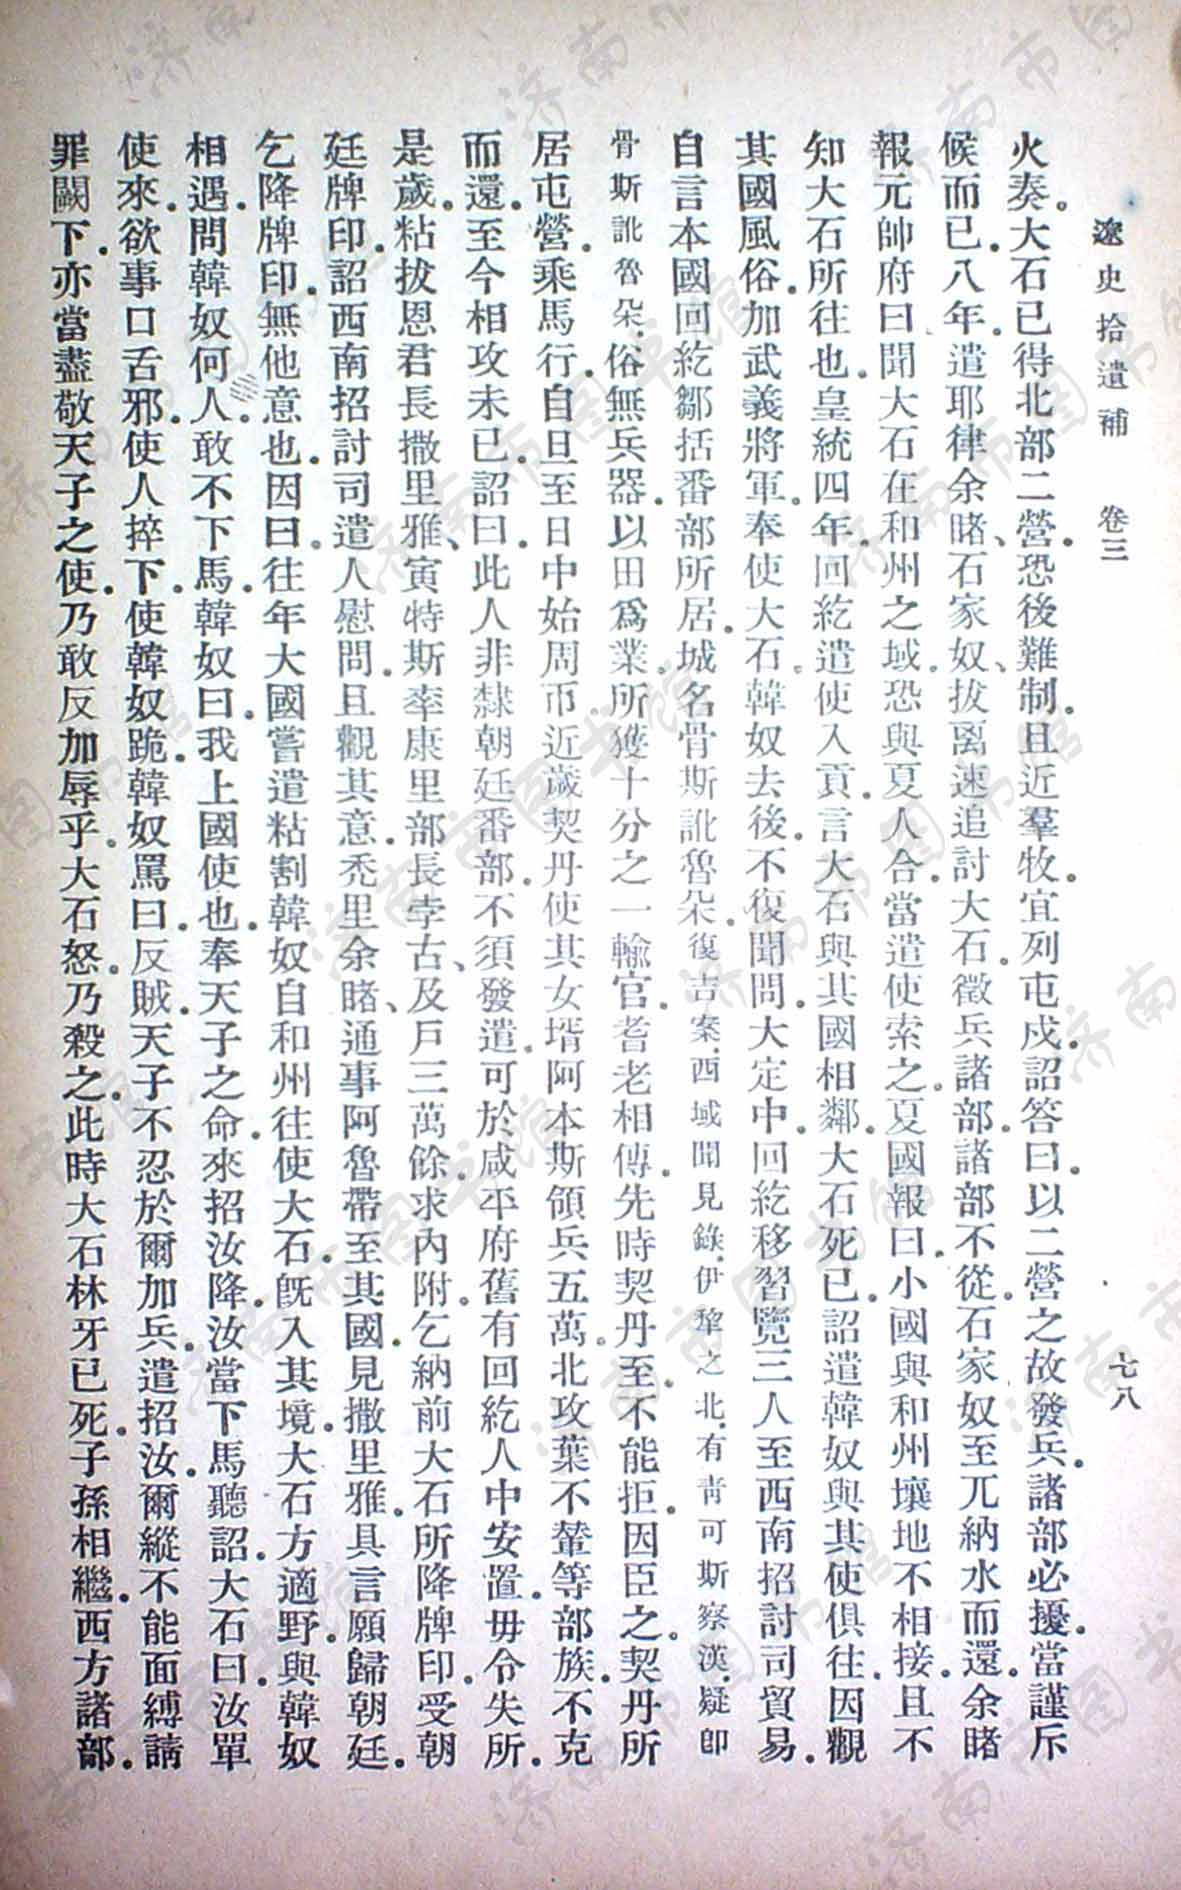 遼史拾遺補　卷三　七八
火奏。大石已得北部二營。恐後難制。且近羣牧。宜列屯戍。詔答曰。以二營之故發兵。諸部必擾。當謹斥
候而已。八年。遣耶律余睹、石家奴、拔离速追討大石。徵兵諸部。諸部不從。石家奴至兀納水而還。余睹
報元帥府曰。聞大石在和州之域。恐與夏人合。當遣使索之。夏國報曰。小國與和州壤地不相接。且不
知大石所往也。皇統四年。回紇遣使入貢。言大石與其國相鄰。大石死已。詔遣韓奴與其使俱往。因觀
其國風俗。加武義將軍。奉使大石。韓奴去後。不復聞問。大定中。回紇移習覽三人至西南招討司貿易。
自言本國回紇鄒括番部。所居城名骨斯訛魯朵。復吉案。西域聞見錄。伊犂之北。有青可斯察漢。疑即
骨斯訛魯朵。俗無兵器。以田爲業。所獲十分之一輸官。耆老相傳。先時契丹至。不能拒。因臣之。契丹所
居屯營。乘馬行。自旦至日中始周帀。近歲契丹使其女壻阿本斯領兵五萬。北攻葉不輦等部族。不克
而還。至今相攻未已。詔曰。此人非隸朝廷番部。不須發遣。可於咸平府舊有回紇人中安置。毋令失所。
是歲。粘拔恩君長撒里雅、寅特斯率康里部長孛古、及戶三萬餘。求內附。乞納前大石所降牌印。受朝
廷牌印。詔西南招討司遣人慰問。且觀其意。禿里余睹、通事阿魯帶至其國。見撒里雅。具言願歸朝廷。
乞降牌印。無他意也。因曰。往年大國嘗遣粘割韓奴自和州往使大石。旣入其境。大石方適野。與韓奴
相遇。問韓奴何人。敢不下馬。韓奴曰。我上國使也。奉天子之命。來招汝降。汝當下馬聽詔。大石曰。汝單
使來。欲事口舌邪。使人捽下。使韓奴跪。韓奴罵曰。反賊。天子不忍於爾加兵。遣招汝。爾縱不能面縛請
罪闕下。亦當盡敬天子之使。乃敢反加辱乎。大石怒。乃殺之。此時大石林牙已死。子孫相繼。西方諸部。
济南市图书馆